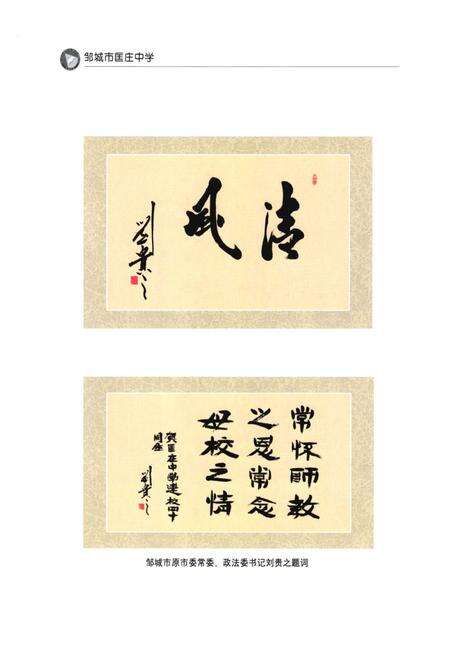 邹城市匡庄中学
清风
刘贵之
常怀师教
之恩常念
母校之情
贺匡庄中学建校四十
周年
刘贵之
邹城市原市委常委、政法委书记刘贵之题词